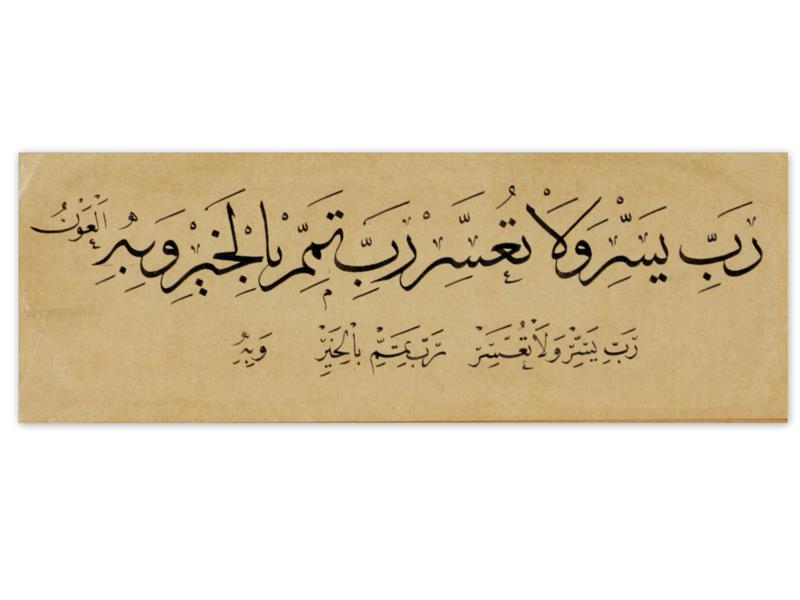 رَبِّ يَسِّرْ وَلَا تُعَسِّرْ رَبِّ تَمِّمْ بِالْخَيْرِ وَبِهِ الْعَوْنُ
رَبِّ يَسِّرْ وَلَا تُعَسِّرْ رَبِّ تَمِّمْ بِالْخَيْرِ وَبِهِ